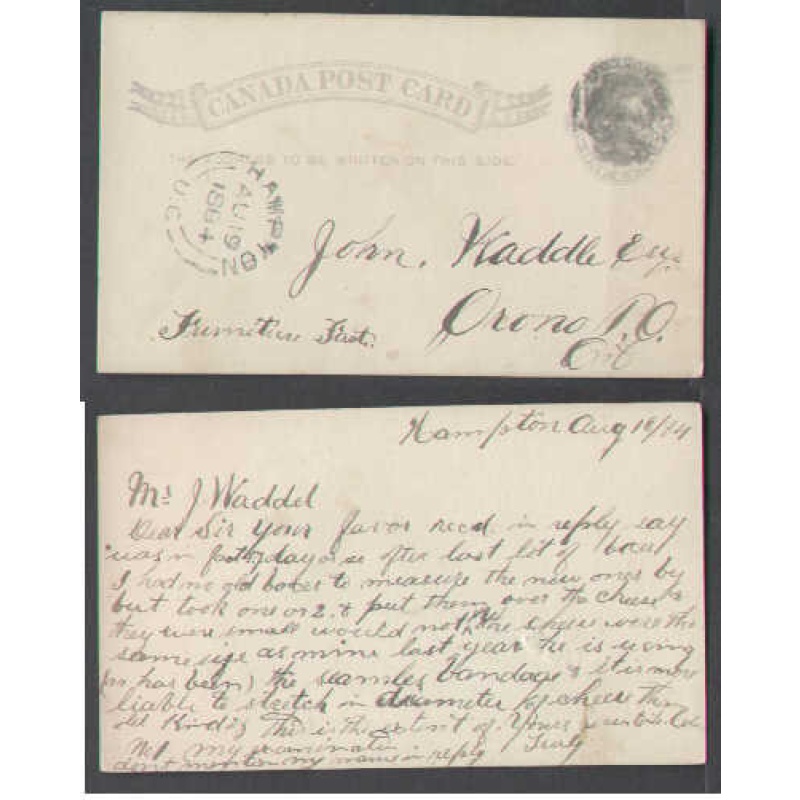 CANADA POST CARD
THE ADDRESS TO BE WRITTEN ON THIS SIDE
HAMPTON
AU 19
1884
U.C.
John. Waddle Esq
Orono P.O.
Ont
Furniture Fact.
Hampton Aug 18/84
Mr J Waddel
Dear Sir Your favor recd. in reply say
was in day or so after last lot of
I had no old boxes to measure the new ones by
but took one or 2 & put them over the cheese &
they were small would not the cheese were the
same size as mine last year he is using
(or has been) the seamless bandage & it is more
liable to stretch in diameter of cheese than
old kind. This is the extent of Yours
my examination Truly
don't mention my name in reply